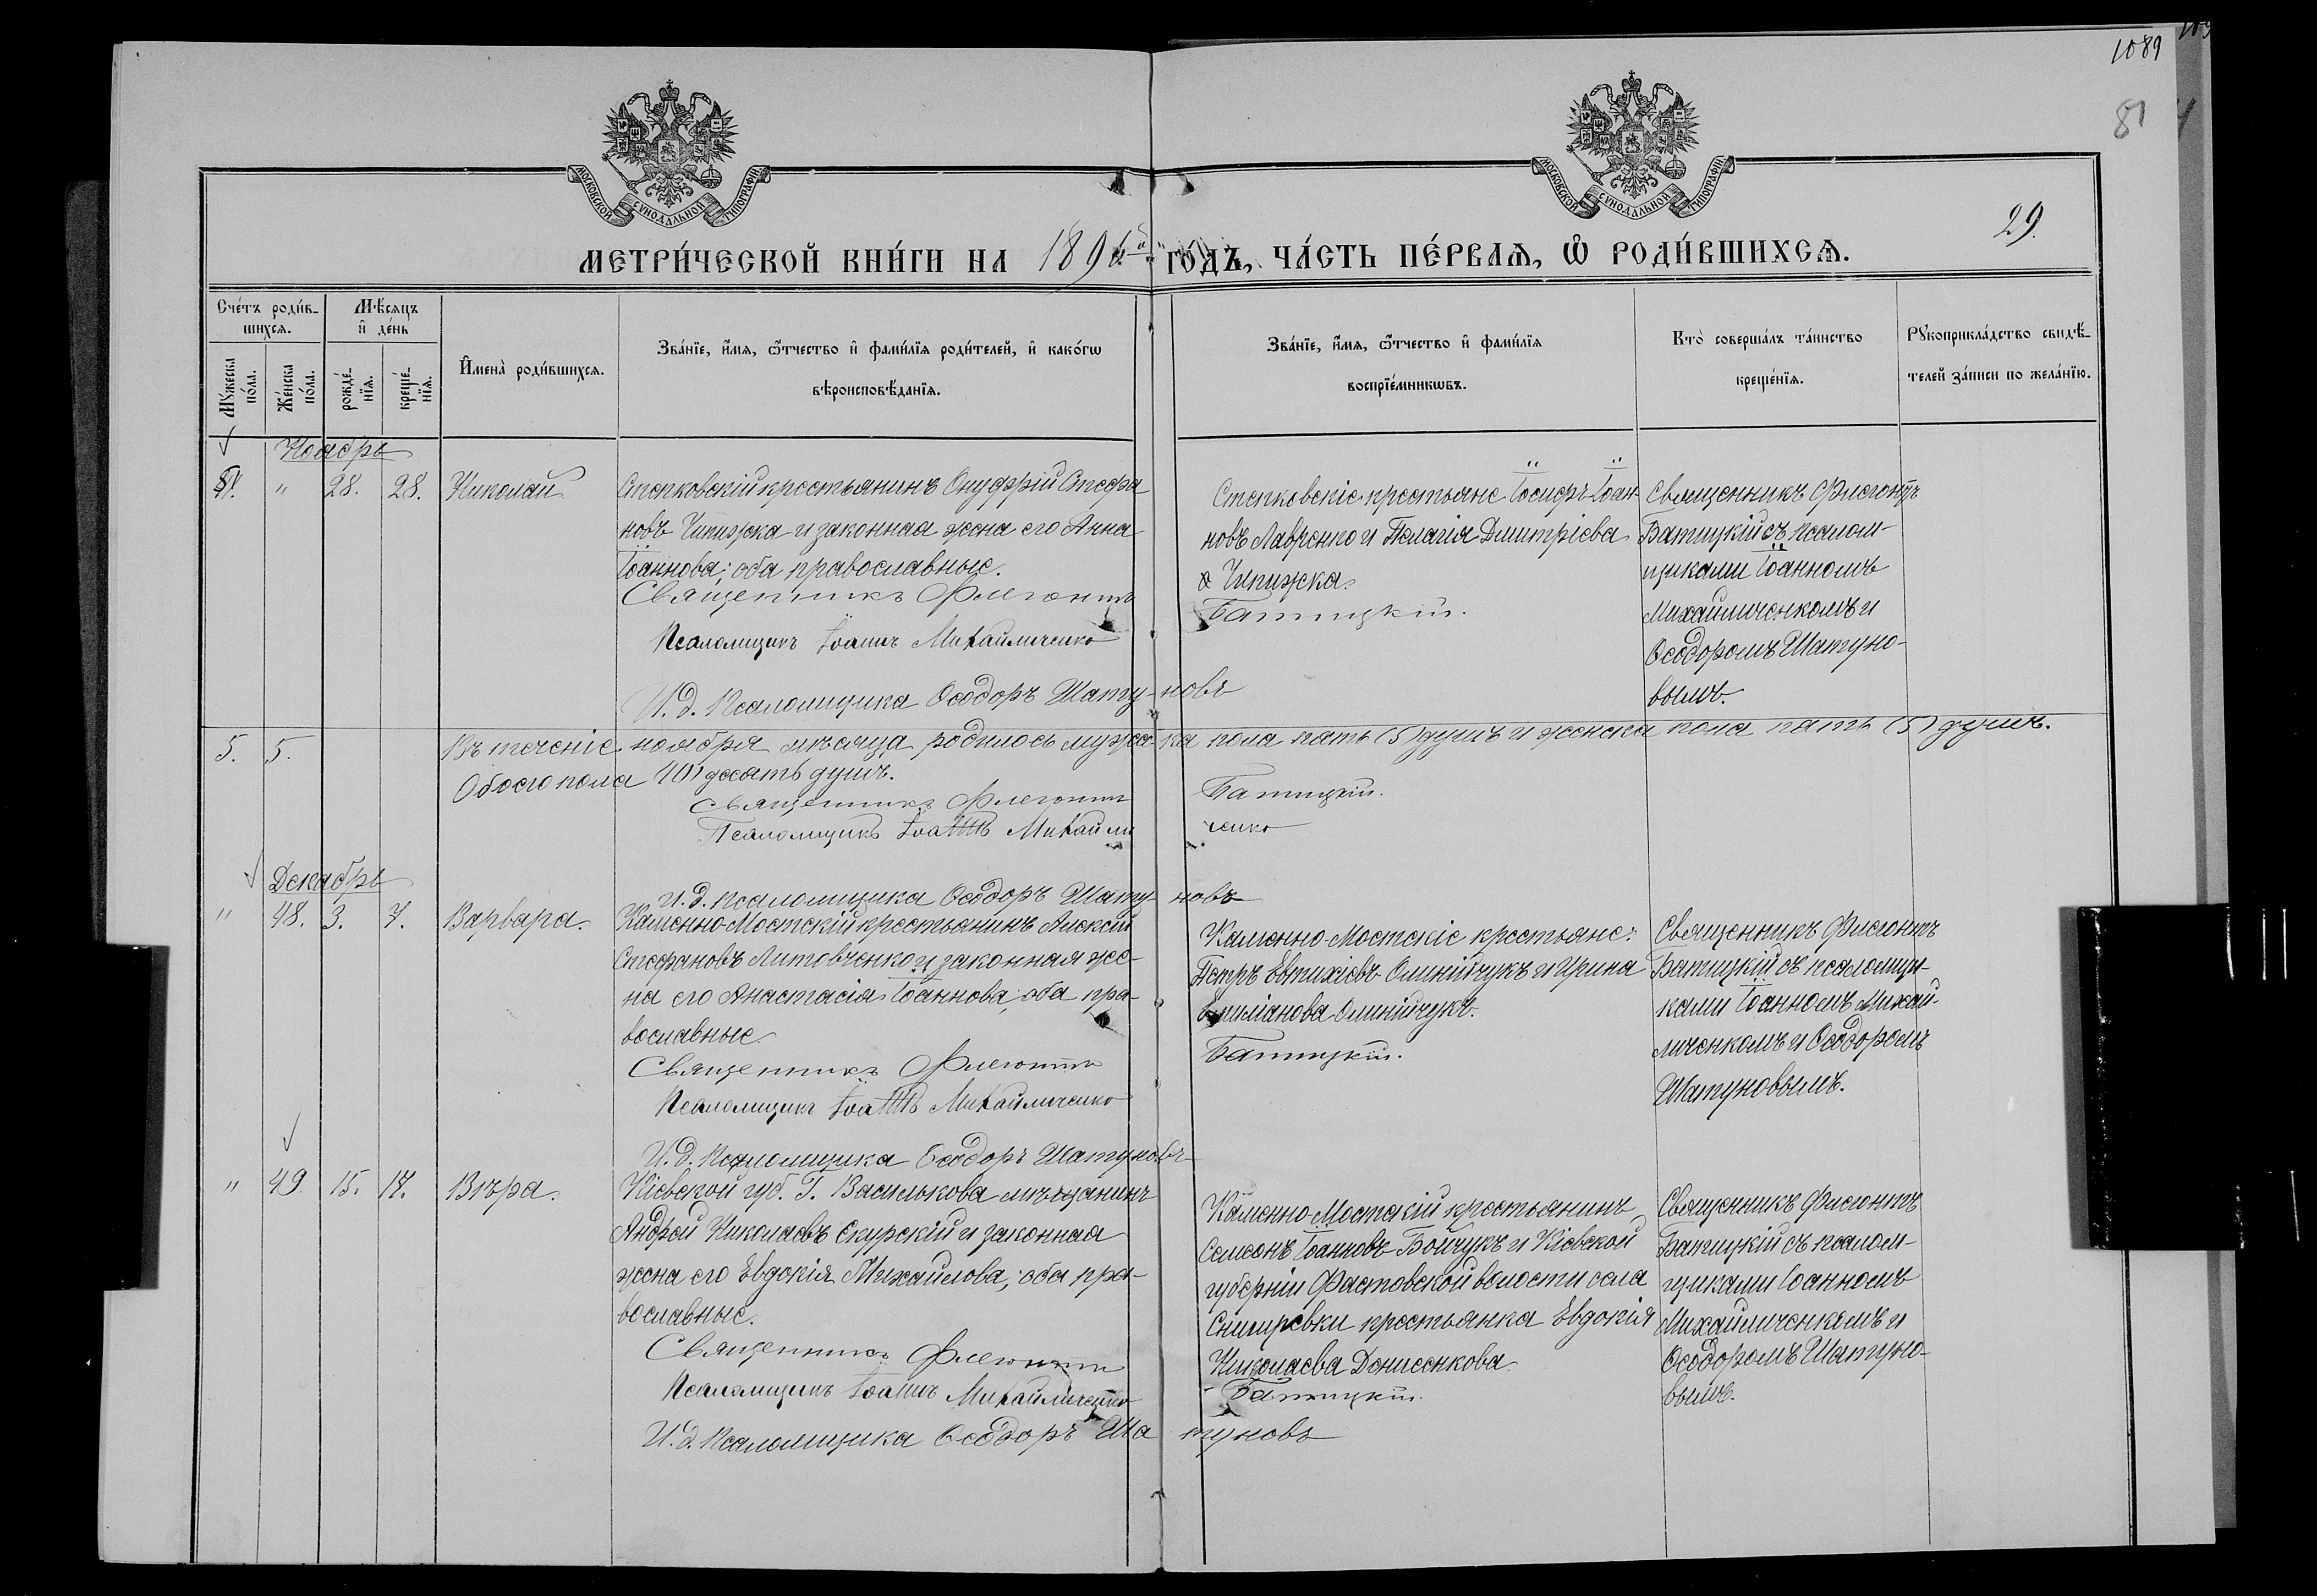 1089
81
29.
МОСКОВСКОЙ СУНОДАЛЬНОЙ ТИПОГРАФІИ
МОСКОВСКОЙ СУНОДАЛЬНОЙ ТИПОГРАФІИ
МЕТРИ́ЧЕСКОЙ КНИ́ГИ НА 189 ГО́ДЪ, ЧА́СТЬ ПЕ́РВАѦ, Ѡ҆ РОДИ́ВШИХСѦ.
Сче́тъ роди́вшихсѧ.
Мѣ́сѧцъ и҆ де́нь
Мꙋ́жеска по́ла.
Же́нска по́ла.
рожде́нїѧ.
креще́нїѧ.
И҆мена̀ роди́вшихсѧ.
Зва́нїе, и҆́мѧ, ѻ҆́тчество и҆ фами́лїѧ роди́телей, и҆ како́гѡ
вѣроисповѣ́данїѧ.
Зва́нїе, и҆́мѧ, ѻ҆́тчество и҆ фами́лїѧ
воспрїе́мникѡвъ.
Кто̀ соверша́лъ та́инство
креще́нїѧ.
Рꙋкоприкла́дство свидѣ́-
телей за́писи по жела́нїю.
Ноябрь
" 28. 28. Николай
Степковскій крестьянинъ Онуфрій Стефа
новъ Чипижка и законная жена его Анна
Іоаннова; оба православные.
Священникъ Флегонтъ Батицкій.
Псаломщикъ Іоаннъ Михайличенко
И. д. Псаломщика Ѳеодоръ Шатуновъ
Степковскіе крестьяне Іосифъ Іоан-
новъ Лавренко и Пелагія Димитріева
Чипижка.
Священникъ Флегонтъ
Батицкій съ псалом-
щиками Іоанномъ
Михайличенкомъ и
Ѳеодоромъ Шатуно-
вымъ.
5. 5. Въ теченіе ноября мѣсяца родилось мужеска пола пять (5) душъ и женска пола пять (5) душъ.
Обоего пола (10) десять душъ.
Священникъ Флегонтъ Батицкій.
Псаломщикъ Іоаннъ Михайличенко
И. д. псаломщика Ѳеодоръ Шатуновъ
Декабрь
" 48. 3. 7. Варвара.
Каменно-Мостскій крестьянинъ Алексій
Стефановъ Литовченко и законная же-
на его Анастасія Іоаннова, оба пра-
вославные.
Священникъ Флегонтъ Батицкій.
Псаломщикъ Іоаннъ Михайличенко
И. д. Псаломщика Ѳеодоръ Шатуновъ
Каменно-Мостскіе крестьяне:
Петръ Евтихіевъ Олинійчукъ и Ирина
Емиліанова Олинійчукъ.
Священникъ Флегонтъ
Батицкій съ псаломщи-
ками Іоанномъ Михай-
личенкомъ и Ѳеодоромъ
Шатуновымъ.
" 49. 15. 17. Вѣра.
Кіевской губ. Г. Василькова мѣщанинъ
Андрей Николаевъ Скурскій и законная
жена его Евдокія Михайлова; оба пра-
вославные.
Священникъ Флегонтъ Батицкій.
Псаломщикъ Іоаннъ Михайличенко
И. д. Псаломщика Ѳеодоръ Шатуновъ
Каменно-Мостскій крестьянинъ
Семеонъ Іоанновъ Бойчукъ и Кіевской
губерніи Фастовской волости села
Снигиревки крестьянка Евдокія
Николаева Денисенкова.
Священникъ Флегонтъ
Батицкій съ псалом-
щиками Іоанномъ
Михайличенкомъ и
Ѳеодоромъ Шатуно-
вымъ.